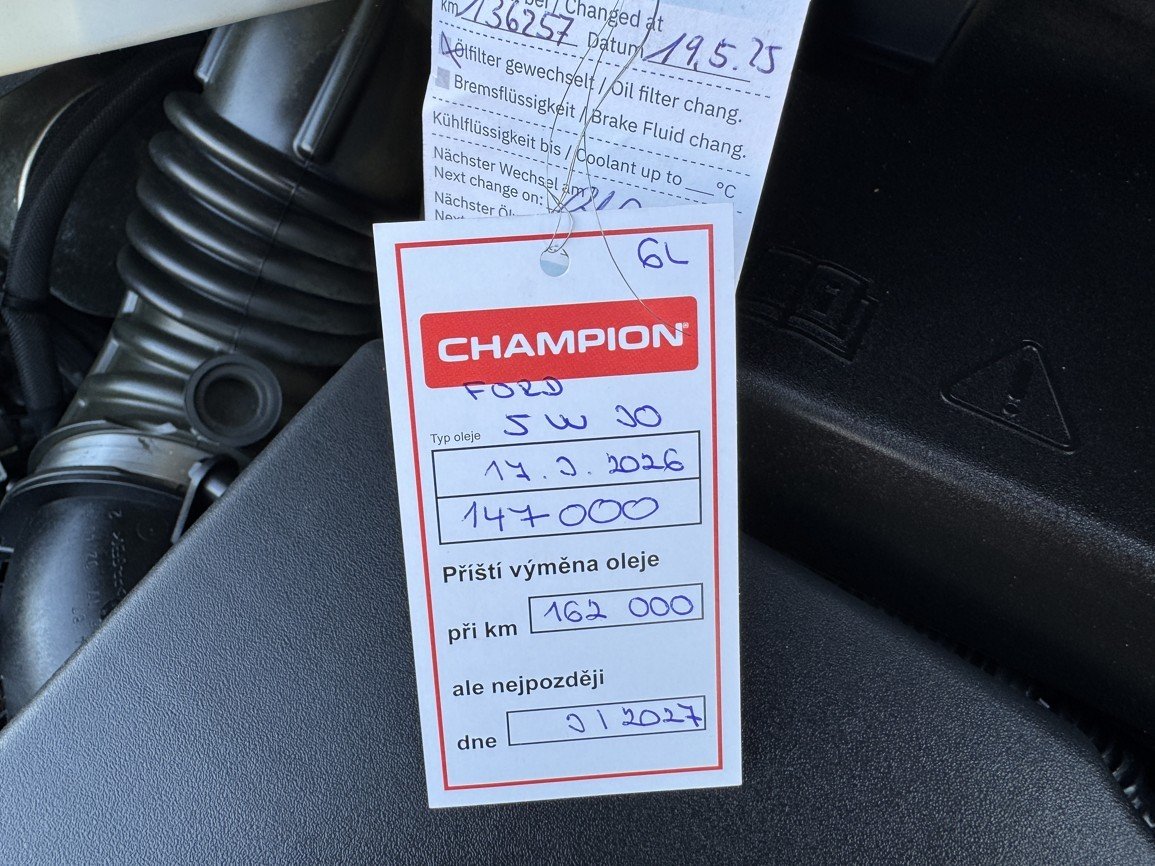 Changed at
km 136257 Datum 19.5.25
Ölfilter gewechselt / Oil filter chang.
Bremsflüssigkeit / Brake Fluid chang.
Kühlflüssigkeit bis / Coolant up to ___ °C
Nächster Wechsel am
Next change on:
Nächster Öl
6L
CHAMPION®
FORD
Typ oleje 5W30
17.3.2026
147000
Příští výměna oleje
při km 162 000
ale nejpozději
dne 3/2027